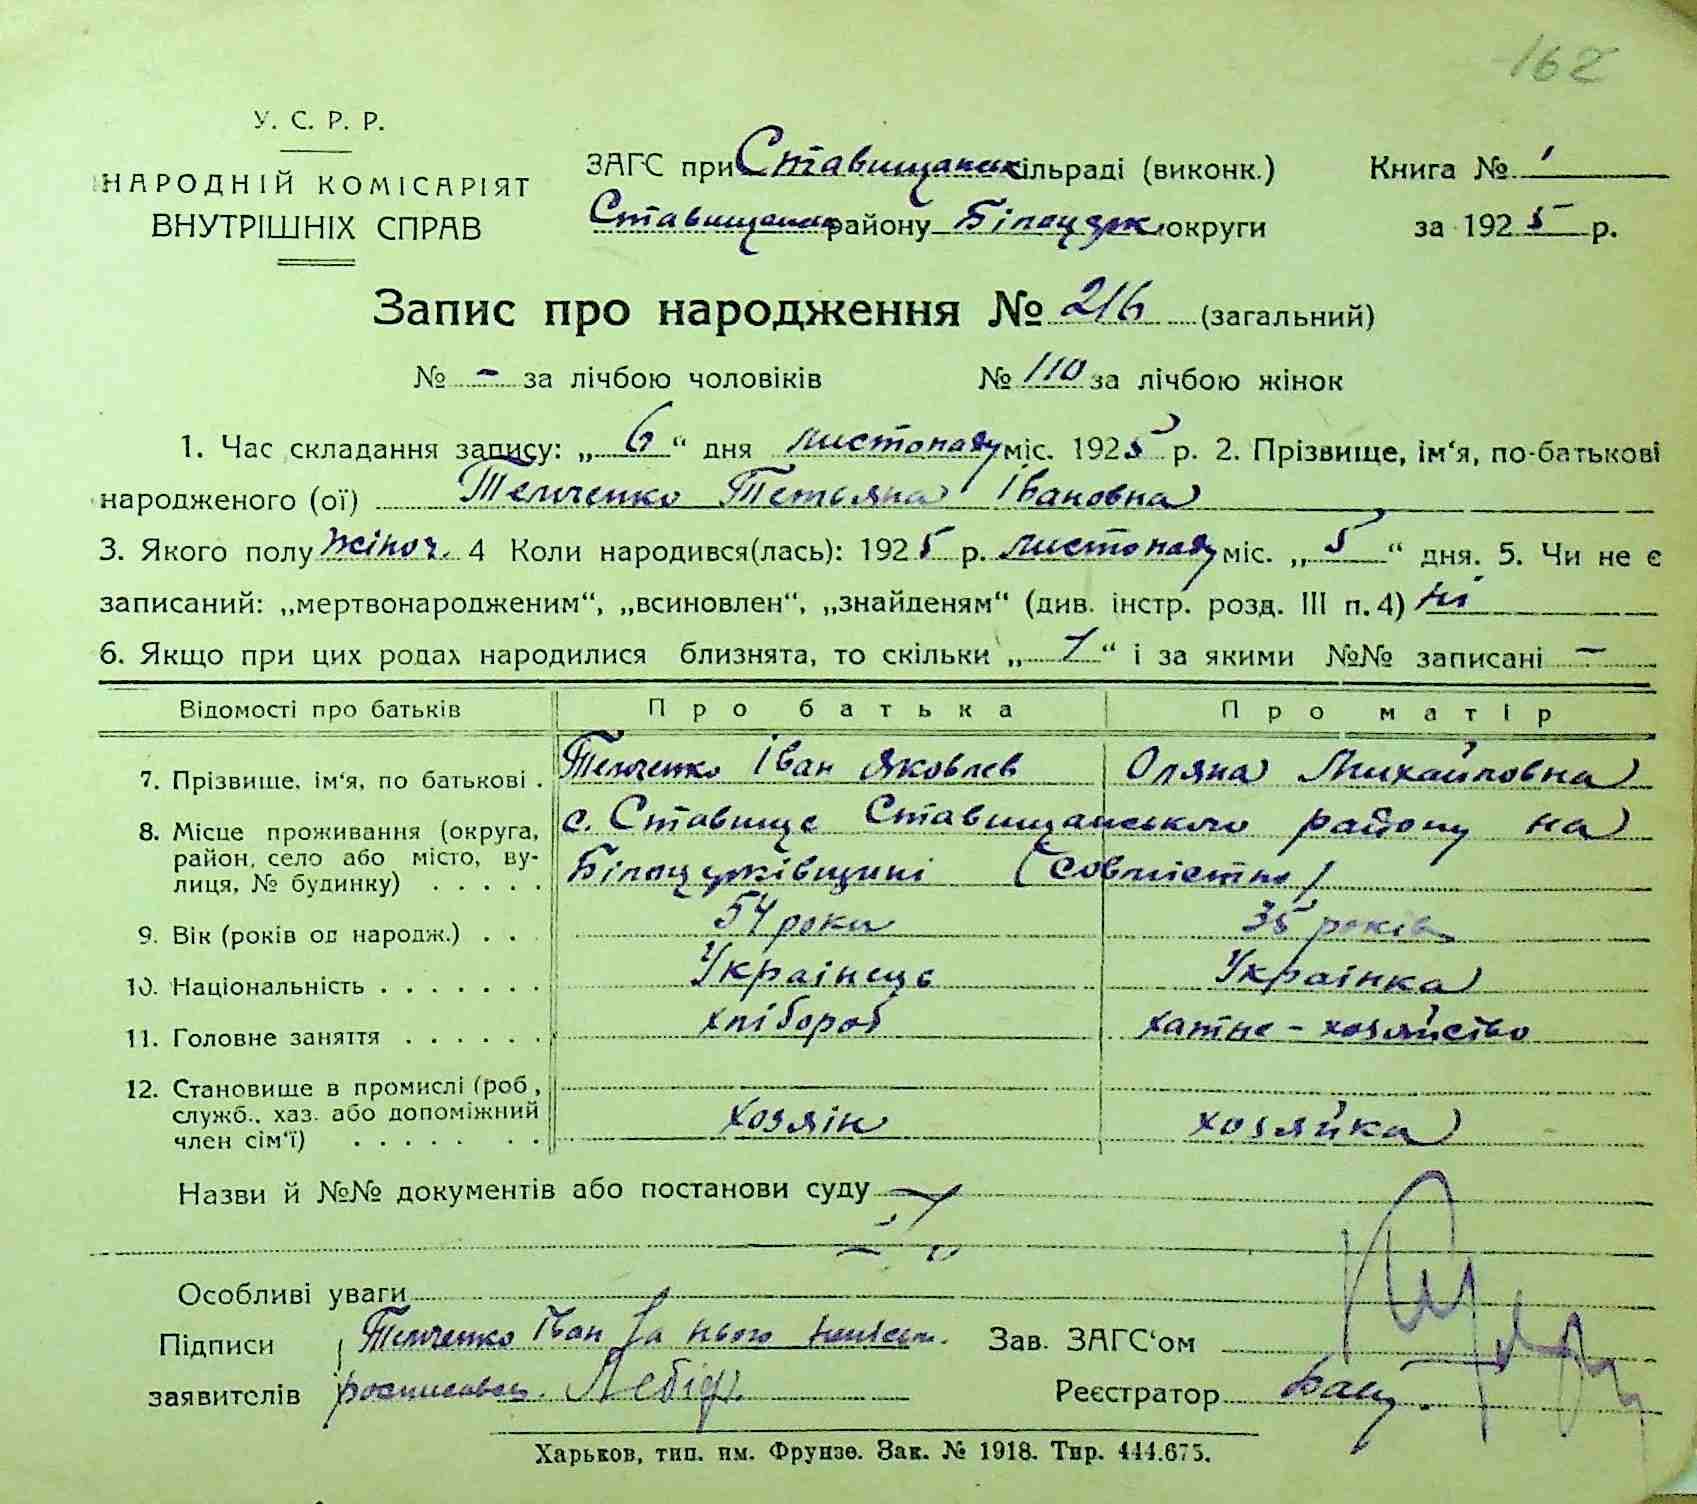 162
У. С. Р. Р.
НАРОДНІЙ КОМІСАРІЯТ
ВНУТРІШНІХ СПРАВ
ЗАГС при Ставищанськ сільраді (виконк.)
Ставищанськ району Білоцерк. округи
Книга № 1
за 1925 р.
Запис про народження № 216 (загальний)
№ - за лічбою чоловіків № 110 за лічбою жінок
1. Час складання запису: „ 6 “ дня листопаду міс. 1925 р. 2. Прізвище, ім‘я, по-батькові
народженого (ої) Темченко Тетьяна Івановна
3. Якого полу жіноч. 4 Коли народився(лась): 1925 р. листопаду міс. „ 5 “ дня. 5. Чи не є
записаний: „мертвонародженим“, „всиновлен“, „знайденям“ (див. інстр. розд. III п. 4) ні
6. Якщо при цих родах народилися близнята, то скільки „ “ і за якими №№ записані —
Відомості про батьків Про батька Про матір
7. Прізвище, ім‘я, по батькові . Темченко Іван Яковлев Оляна Михайловна
8. Місце проживання (округа, с. Ставище Ставищанського району на
район, село або місто, ву-
лиця, № будинку) . . . . . Білоцерківщині (совмістно)
9. Вік (років од народж.) . . 54 роки 35 років
10. Національність . . . . . . . Украінець Украінка
11. Головне заняття . . . . . . хлібороб хатнє - хозяйство
12. Становище в промислі (роб.,
служб., хаз. або допоміжний хозяін хозяйка
член сім‘ї) . . . . . . .
Назви й №№ документів або постанови суду
Особливі уваги
Підписи Темченко Іван за нього Зав. ЗАГС‘ом
заявителів росписавсь. Реєстратор
Харьков, тип. им. Фрунзе. Зак. № 1918. Тир. 444.675.